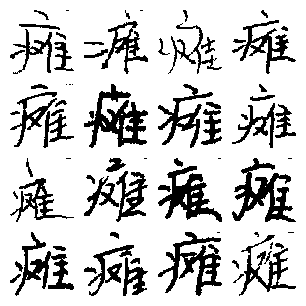 瘫瘫瘫瘫
瘫瘫瘫瘫
瘫瘫瘫瘫
瘫瘫瘫瘫